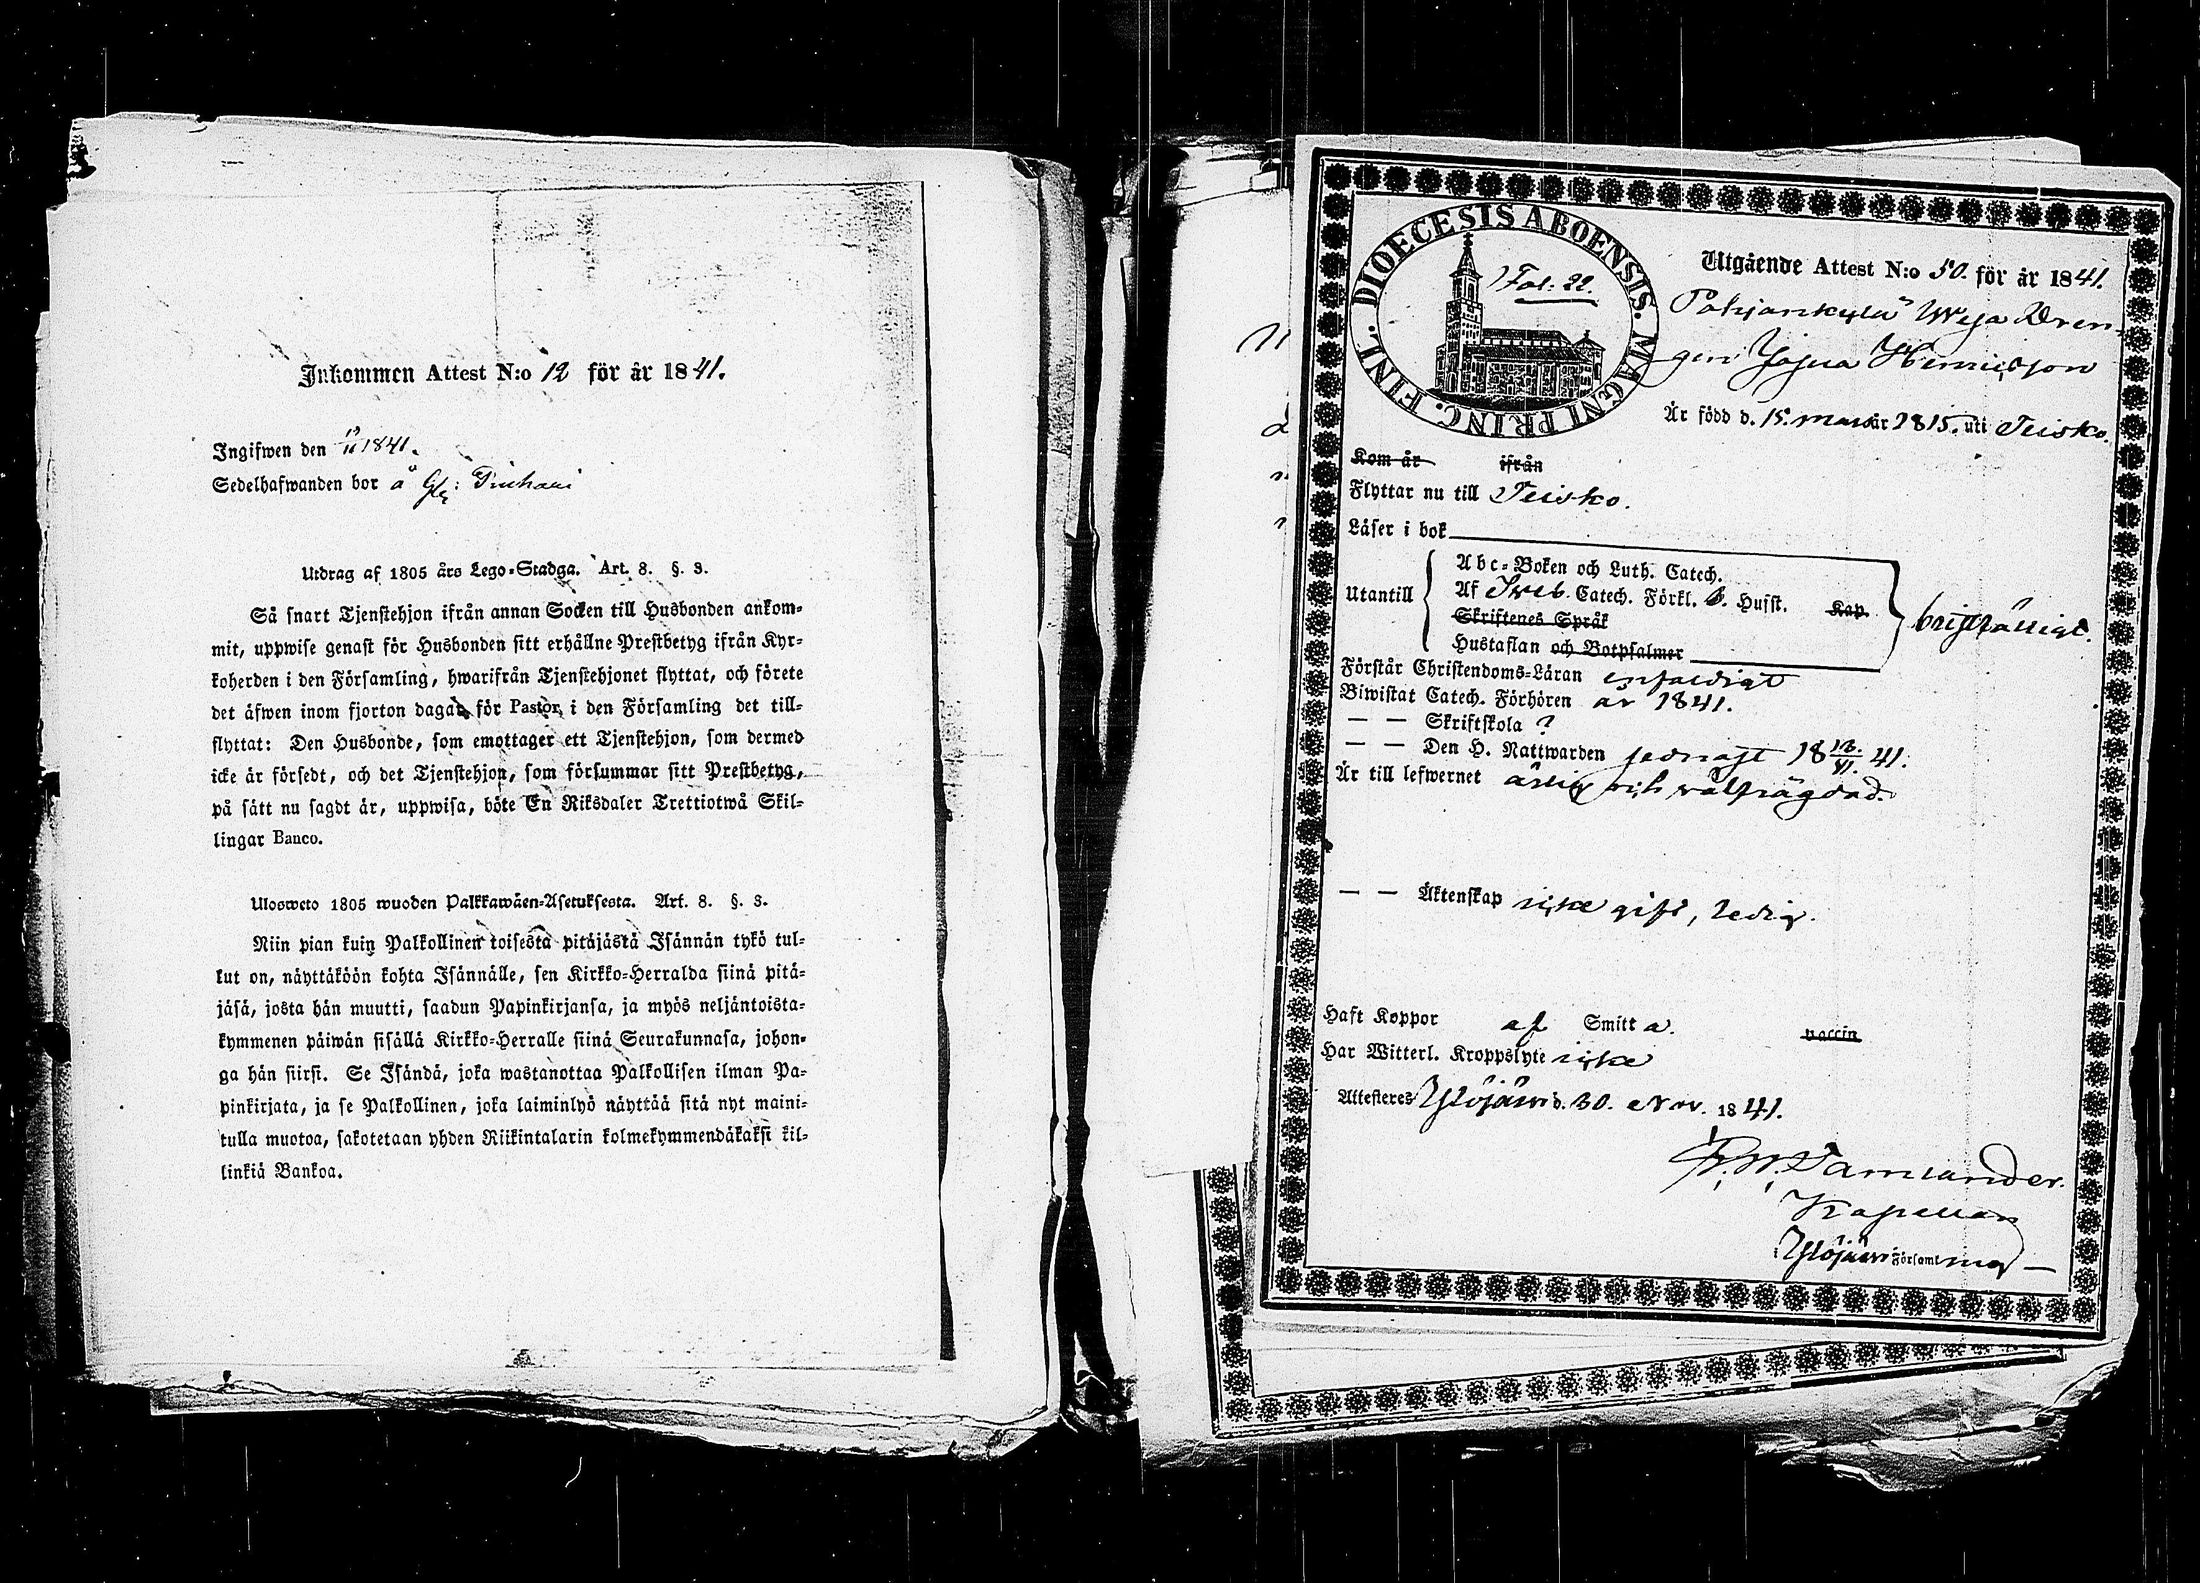 Inkommen Attest N:o 12 för år 1841.
Ingifwen den 1841.
Sedelhafwanden bor å
Utdrag af 1805 års Lego-Stadga. Art. 8. §. 3.
Så snart Tjenstehjon ifrån annan Socken till Husbonden ankom-
mit, uppwise genast för Husbonden sitt erhållne Prestbetyg ifrån Kyr-
koherden i den Församling, hwarifrån Tjenstehjonet flyttat, och förete
det äfwen inom fjorton dagar för Pastor i den Församling det till-
flyttat: Den Husbonde, som emottager ett Tjenstehjon, som dermed
icke är försedt, och det Tjenstehjon, som försummar sitt Prestbetyg,
på sätt nu sagdt är, uppwisa, böte En Riksdaler Trettiotwå Skil-
lingar Banco.
Ulosweto 1805 wuoden Palkkawäen-Asetuksesta. Art. 8. §. 3.
Niin pian kuin Palkollinen toisesta pitäjästä Isännän tykö tul-
lut on, näyttäköön kohta Isännälle, sen Kirkko-Herralda siinä pitä-
jäsä, josta hän muutti, saadun Papinkirjansa, ja myös neljäntoista-
kymmenen päiwän sisällä Kirkko-Herralle siinä Seurakunnasa, johon-
ga hän siirsi. Se Isändä, joka wastanottaa Palkollisen ilman Pa-
pinkirjata, ja se Palkollinen, joka laiminlyö näyttää sitä nyt maini-
tulla muotoa, sakotetaan yhden Riikintalarin kolmekymmendäkaksi kil-
linkiä Bankoa.
DIOECESIS ABOENSIS. MAGNI PRINC. FINL.
Fol: 22.
Utgående Attest N:o 50. för år 1841.
Pohjankylä Dren-
gen Josua Henricsson
Är född d. 15. mars år 1815. uti Teisko.
Kom år ifrån
Flyttar nu till Teisko.
Läser i bok
Utantill
Abc-Boken och Luth. Catech.
Af Sveb. Catech. Förkl. Husst. Kap.
Skriftenes Språk
Hustaflan och Botpsalmer
bristfälligt.
Förstår Christendoms-Läran enfaldigt
Biwistat Catech. Förhören år 1841.
— — Skriftskola ?
— — Den H. Nattwarden sednast 18 41.
Är till lefwernet ärlig och välfrägdad.
— — Äktenskap icke gift, ledig.
Haft Koppor af Smitta. vaccin
Har Witterl. Kroppslyte icke
Attesteres Ylöjärvi d. 30. Nov. 1841.
Tamlander.
Kapellan
Ylöjärvi Församling